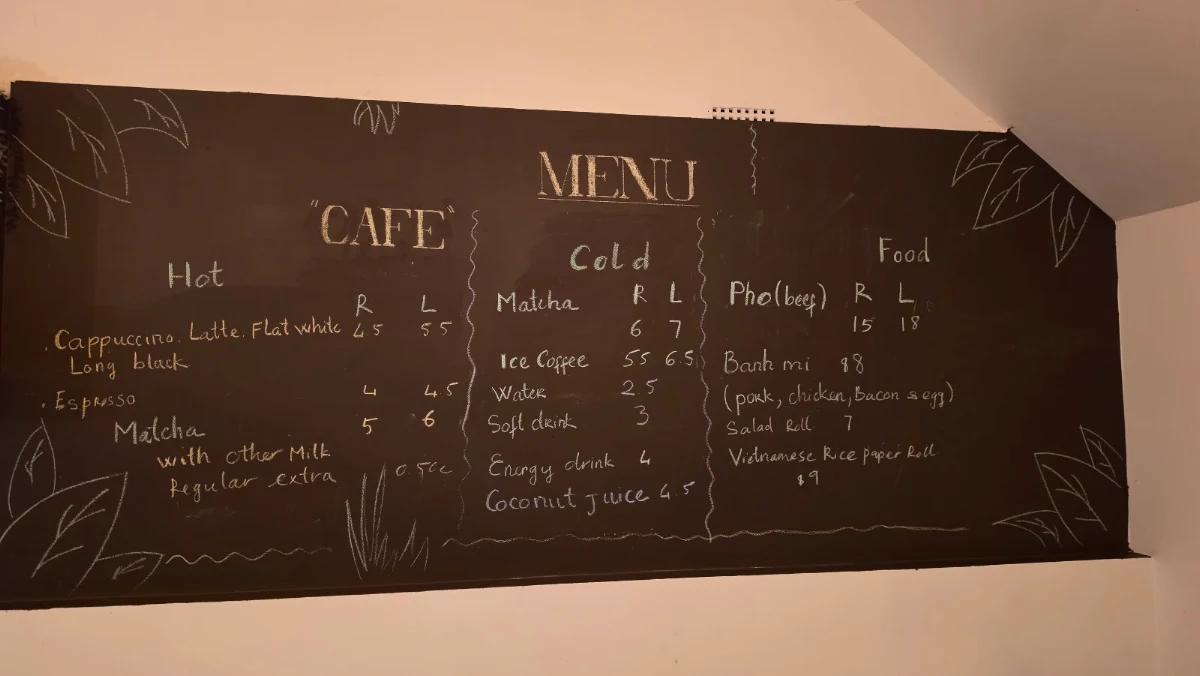 MENU
"CAFE"
Hot
R L
. Cappuccino. Latte. Flat white 4 5 5 5
Long black
. Espresso 4 4.5
Matcha 5 6
with other Milk
Regular extra 0.5cc
Cold
Matcha R L
6 7
Ice Coffee 55 6.5
Water 2.5
Soft drink 3
Energy drink 4
Coconut juice 4.5
Food
Pho(beef) R L
15 18
Banh mi $8
(pork, chicken, Bacon & egg)
Salad Roll 7
Vietnamese Rice paper Roll
$9